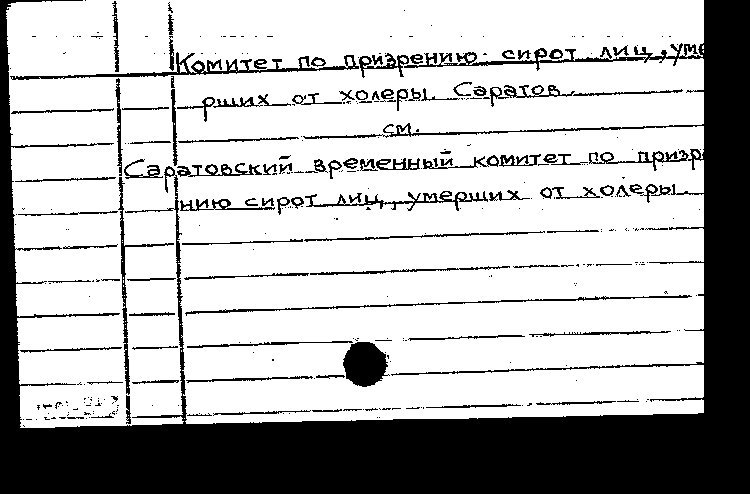 Комитет по призрению сирот лиц, уме
рших от холеры. Саратов.
см.
Саратовский временный комитет по призр
нию сирот лиц, умерших от холеры.